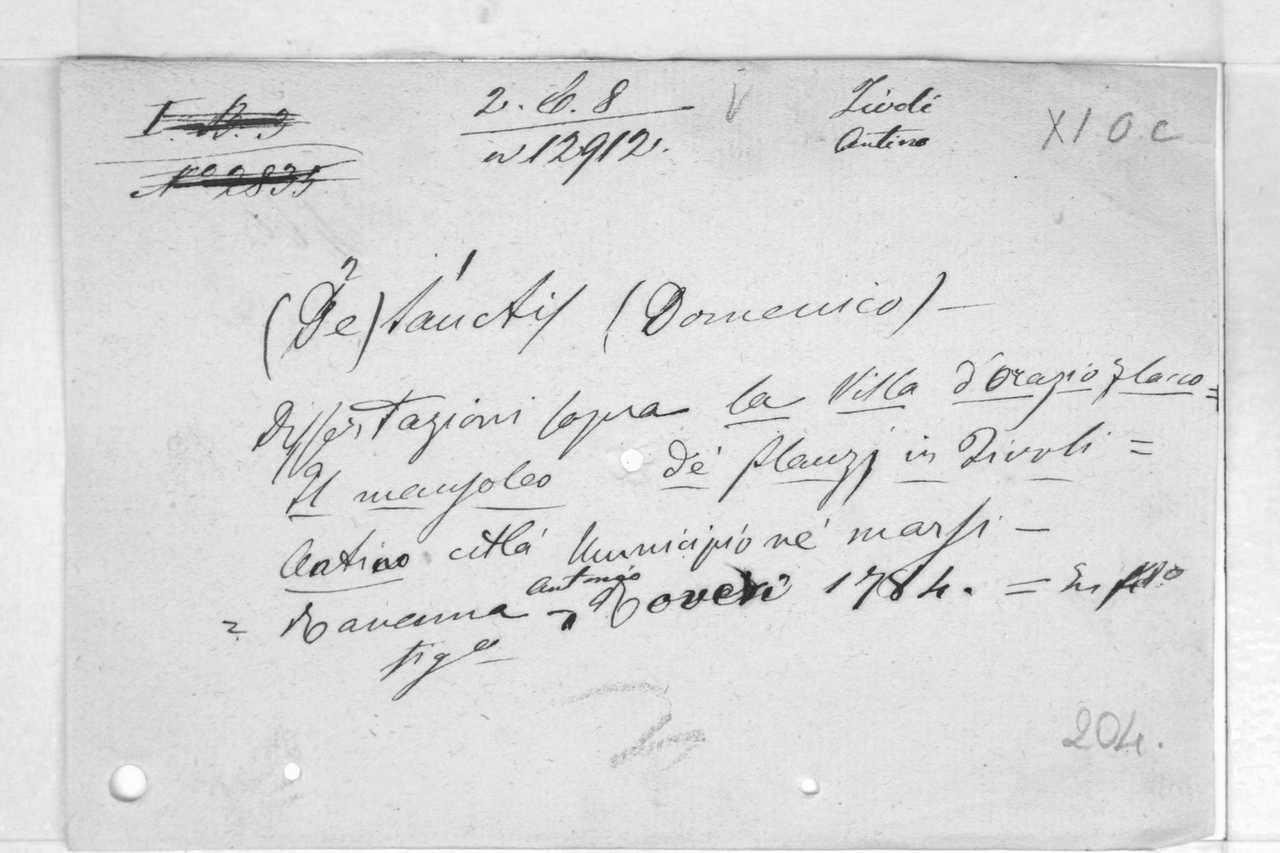 I. B. 3
2. C. 8
Tivoli
XI O. c
n 12912.
Antino
Nº 2835
2 1
(De) Sanctis (Domenico) —
Dissertazioni sopra la Villa d'Orazio Flacco =
Il mausoleo de' Plauzj in Tivoli =
Antino città Municipio ne' marsi —
= Ravenna Antonio Roveri 1784. = In fol.º
fig.e
204.